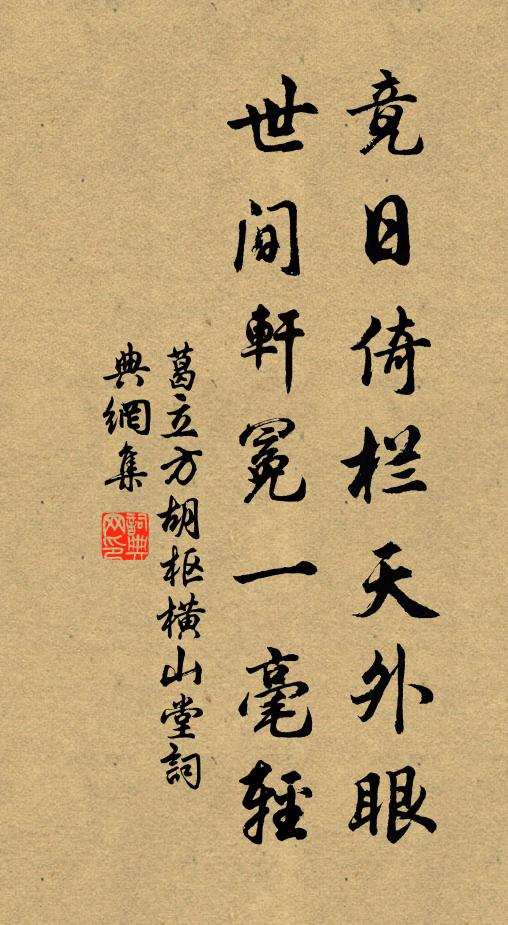 竟日倚栏天外眼
世间軒冕一毫輕
葛立方胡枢橫山堂詞
典網集
詞典网印